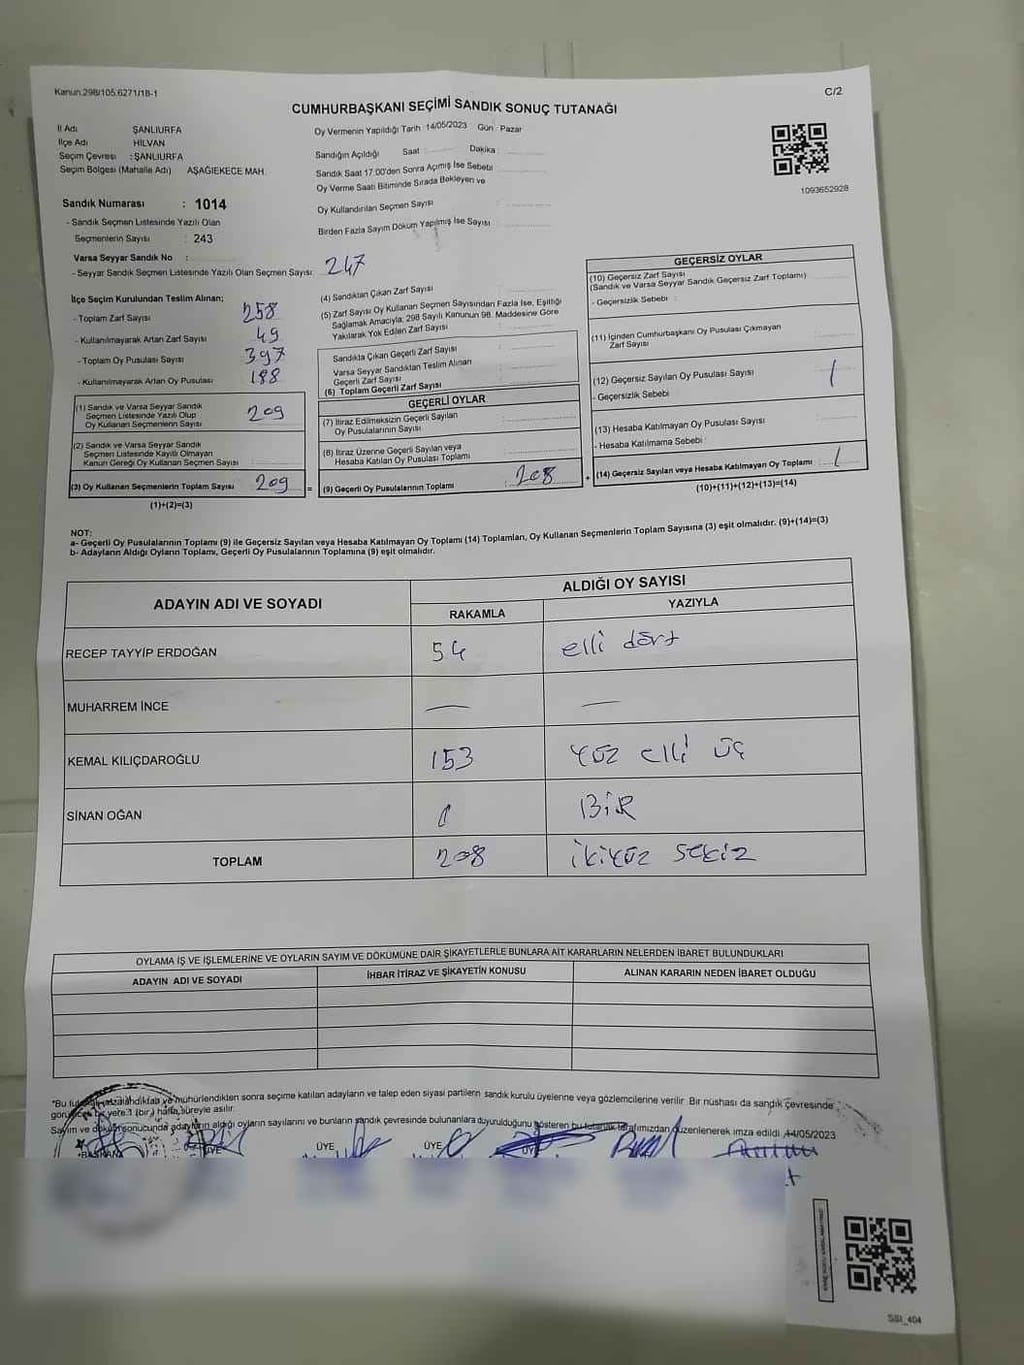 Kanun.298/105.6271/18-1
C/2
CUMHURBAŞKANI SEÇİMİ SANDIK SONUÇ TUTANAĞI
İl Adı ŞANLIURFA
İlçe Adı HİLVAN
Seçim Çevresi : ŞANLIURFA
Seçim Bölgesi (Mahalle Adı) AŞAĞIEKECE MAH.
Oy Vermenin Yapıldığı Tarih 14/05/2023 Gün : Pazar
Sandığın Açıldığı Saat Dakika
Sandık Saat 17.00'den Sonra Açımış İse Sebebi
Oy Verme Saati Bitiminde Sırada Bekleyen ve
Oy Kullandırılan Seçmen Sayısı
Birden Fazla Sayım Döküm Yapılmış İse Sayısı
1093652928
Sandık Numarası : 1014
- Sandık Seçmen Listesinde Yazılı Olan
Seçmenlerin Sayısı : 243
Varsa Seyyar Sandık No :
- Seyyar Sandık Seçmen Listesinde Yazılı Olan Seçmen Sayısı: 247
İlçe Seçim Kurulundan Teslim Alınan;
- Toplam Zarf Sayısı 258
- Kullanılmayarak Artan Zarf Sayısı 49
- Toplam Oy Pusulası Sayısı 397
- Kullanılmayarak Artan Oy Pusulası 188
(1) Sandık ve Varsa Seyyar Sandık
Seçmen Listesinde Yazılı Olup
Oy Kullanan Seçmenlerin Sayısı 209
(2) Sandık ve Varsa Seyyar Sandık
Seçmen Listesinde Kayıtlı Olmayan
Kanun Gereği Oy Kullanan Seçmen Sayısı
(3) Oy Kullanan Seçmenlerin Toplam Sayısı 209 =
(1)+(2)=(3)
(4) Sandıktan Çıkan Zarf Sayısı
(5) Zarf Sayısı Oy Kullanan Seçmen Sayısından Fazla İse, Eşitliği
Sağlamak Amacıyla; 298 Sayılı Kanunun 98. Maddesine Göre
Yakılarak Yok Edilen Zarf Sayısı
Sandıkta Çıkan Geçerli Zarf Sayısı
Varsa Seyyar Sandıktan Teslim Alınan
Geçerli Zarf Sayısı
(6) Toplam Geçerli Zarf Sayısı
GEÇERLİ OYLAR
(7) İtiraz Edilmeksizin Geçerli Sayılan
Oy Pusulalarının Sayısı
(8) İtiraz Üzerine Geçerli Sayılan veya
Hesaba Katılan Oy Pusulası Toplamı
(9) Geçerli Oy Pusulalarının Toplamı : 208 +
GEÇERSİZ OYLAR
(10) Geçersiz Zarf Sayısı
(Sandık ve Varsa Seyyar Sandık Geçersiz Zarf Toplamı)
- Geçersizlik Sebebi :
(11) İçinden Cumhurbaşkanı Oy Pusulası Çıkmayan
Zarf Sayısı
(12) Geçersiz Sayılan Oy Pusulası Sayısı 1
- Geçersizlik Sebebi
(13) Hesaba Katılmayan Oy Pusulası Sayısı
- Hesaba Katılmama Sebebi :
(14) Geçersiz Sayılan veya Hesaba Katılmayan Oy Toplamı 1
(10)+(11)+(12)+(13)=(14)
NOT:
a- Geçerli Oy Pusulalarının Toplamı (9) ile Geçersiz Sayılan veya Hesaba Katılmayan Oy Toplamı (14) Toplamları, Oy Kullanan Seçmenlerin Toplam Sayısına (3) eşit olmalıdır. (9)+(14)=(3)
b- Adayların Aldığı Oyların Toplamı, Geçerli Oy Pusulalarının Toplamına (9) eşit olmalıdır.
ADAYIN ADI VE SOYADI ALDIĞI OY SAYISI
RAKAMLA YAZIYLA
RECEP TAYYİP ERDOĞAN 54 elli dört
MUHARREM İNCE — —
KEMAL KILIÇDAROĞLU 153 YÜZ ELLİ ÜÇ
SİNAN OĞAN 1 BİR
TOPLAM 208 İKİYÜZ SEKİZ
OYLAMA İŞ VE İŞLEMLERİNE VE OYLARIN SAYIM VE DÖKÜMÜNE DAİR ŞİKAYETLERLE BUNLARA AİT KARARLARIN NELERDEN İBARET BULUNDUKLARI
ADAYIN ADI VE SOYADI İHBAR İTİRAZ VE ŞİKAYETİN KONUSU ALINAN KARARIN NEDEN İBARET OLDUĞU
"Bu ve mühürlendikten sonra seçime katılan adayların ve talep eden siyasi partilerin sandık kurulu üyelerine veya gözlemcilerine verilir. Bir nüshası da sandık çevresinde
yere 1 (bir) hafta süreyle asılır.
Sayım ve döküm sonucunda adayların aldığı oyların sayılarını ve bunların sandık çevresinde bulunanlara duyurulduğunu gösteren bu tutanak tarafımızdan düzenlenerek imza edildi. 14/05/2023
BAŞKAN ÜYE ÜYE ÜYE
SSI_404